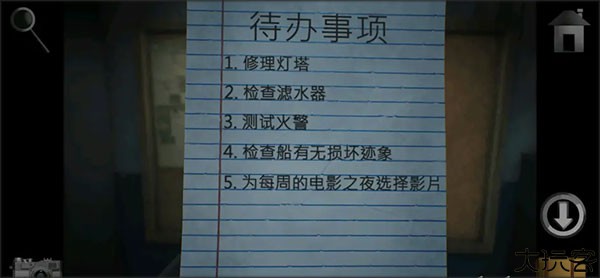 待办事项
1. 修理灯塔
2. 检查滤水器
3. 测试火警
4. 检查船有无损坏迹象
5. 为每周的电影之夜选择影片
大玩家